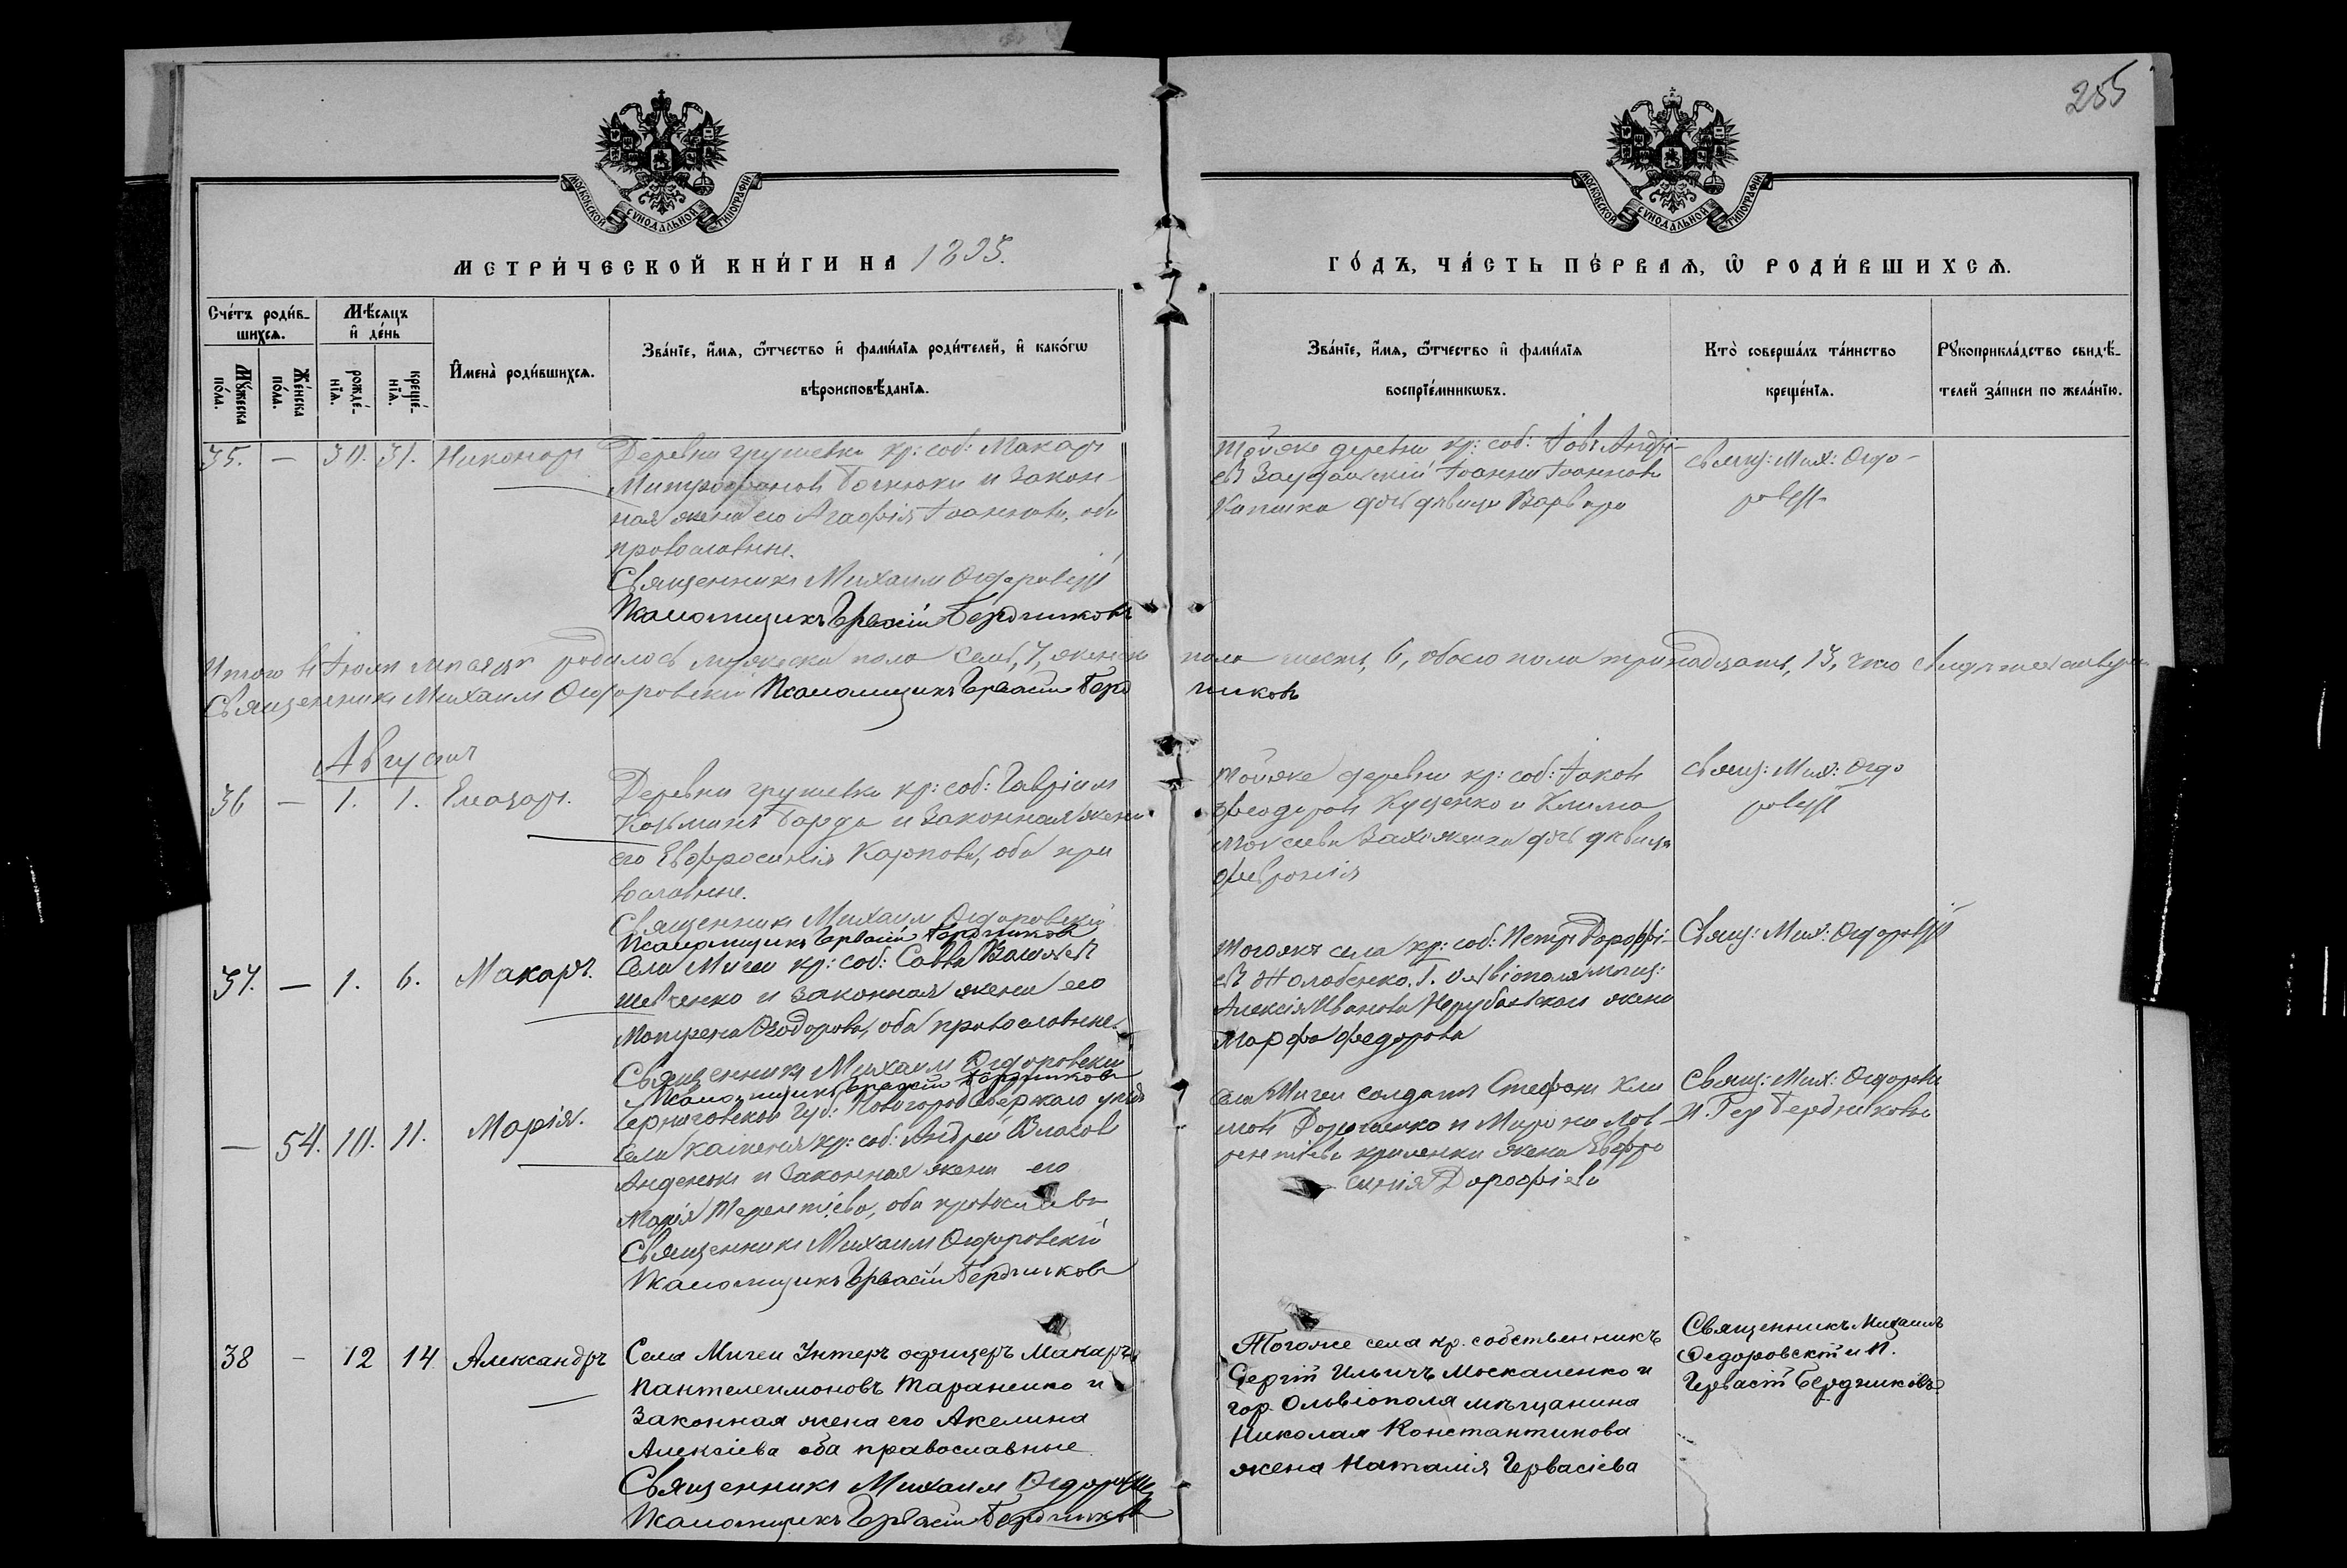 255
МОСКОВСКОЙ СѴНОДАЛЬНОЙ ТИПОГРАФІИ
МОСКОВСКОЙ СѴНОДАЛЬНОЙ ТИПОГРАФІИ
МЕТРИ́ЧЕСКОЙ КНИ́ГИ НА 1895.
ГО́ДЪ, ЧА́СТЬ ПЕ́РВАѦ, Ѡ҆ РОДИ́ВШИХСѦ.
Сче́тъ роди́в-
шихсѧ.
Мꙋ́жеска по́ла.
Же́нска по́ла.
Мѣ́сѧцъ
и҆ де́нь
рожде́-
нїѧ.
креще́-
нїѧ.
И҆мена̀ роди́вшихсѧ.
Зва́нїе, и҆́мѧ, ѻ҆́тчество и҆ фами́лїѧ роди́телей, и҆ како́гѡ
вѣроисповѣ́данїѧ.
Зва́нїе, и҆́мѧ, ѻ҆́тчество и҆ фами́лїѧ
воспрїе́мникѡвъ.
Кто̀ соверша́лъ та́инство
креще́нїѧ.
Рꙋкоприкла́дство свидѣ́-
телей за́писи по жела́нїю.
35. — 30. 31. Никоноръ
Деревни Грушевки кр: соб: Макаръ
Митрофановъ и закон-
ная жена его Агафія Іоаннова, оба
православные.
Священникъ Михаилъ Ѳедоровскій
Псаломщикъ Гервасій Бердниковъ
Тойже деревни кр: соб: Іовъ Андрі-
евъ Іоанна Іоаннова
дочь дѣвица Варвара
Свящ: Мих: Ѳедо-
ровскій
Итого въ Іюлѣ мѣсяцѣ родилось мужеска пола семь, 7, женска пола шесть, 6, обоего пола тринадцать, 13, что
Священникъ Михаилъ Ѳедоровскій Псаломщикъ Гервасій Бердниковъ
Августъ
36 — 1. 1. Елеазаръ.
Деревни Грушевки кр: соб: Гавріилъ
Козьминъ и законная жена
его Евфросинія Карпова, оба пра
вославные.
Священникъ Михаилъ Ѳедоровскій
Псаломщикъ Гервасій Бердниковъ
Тойже деревни кр: соб: Іаковъ
Ѳеодоровъ Куценко и Клима
дочь дѣвица
Февронія
Свящ: Мих: Ѳедо
ровскій
37. — 1. 6. Макаръ.
Села Мигеи кр: соб: Савва
Шевченко и законная жена его
Матрена Ѳеодорова, оба православные.
Священникъ Михаилъ Ѳедоровскій
Псаломщикъ Гервасій Бердниковъ
Тогожъ села кр: соб: Петръ Дорофѣ-
евъ Жолобенко, г. Ольвіополя мѣщ:
Алексія Иванова жена
Марфа Федорова
Свящ: Мих: Ѳедоровскій
— 54. 10. 11. Марія.
Черниговской губ: Новгородсѣверскаго уѣзда
Села Каменя кр: соб: Андрей Власовъ
и законная жена его
Марія Терентіева, оба православн
Священникъ Михаилъ Ѳедоровскій
Псаломщикъ Гервасій Бердниковъ
Села Мигеи солдатъ Стефанъ Кли
мовъ и Мирона Лав-
рентіева жена Евфро
синія Дорофіева
Свящ: Мих: Ѳедоровскій
П. Гер Бердниковъ
38 — 12 14 Александръ
Села Мигеи Унтеръ офицеръ Макаръ
Пантелеимоновъ Тараненко и
Законная жена его Акелина
Алексіева оба православные
Священникъ Михаилъ Ѳедоровскій
Псаломщикъ Гервасій Бердниковъ
Тогоже села кр. собственникъ
Сергій Ильичъ Москаленко и
гор. Ольвіополя мѣщанина
Николая Константинова
жена Наталія Гервасіева
Священникъ Михаилъ
Ѳедоровскій и П.
Гервасій Бердниковъ